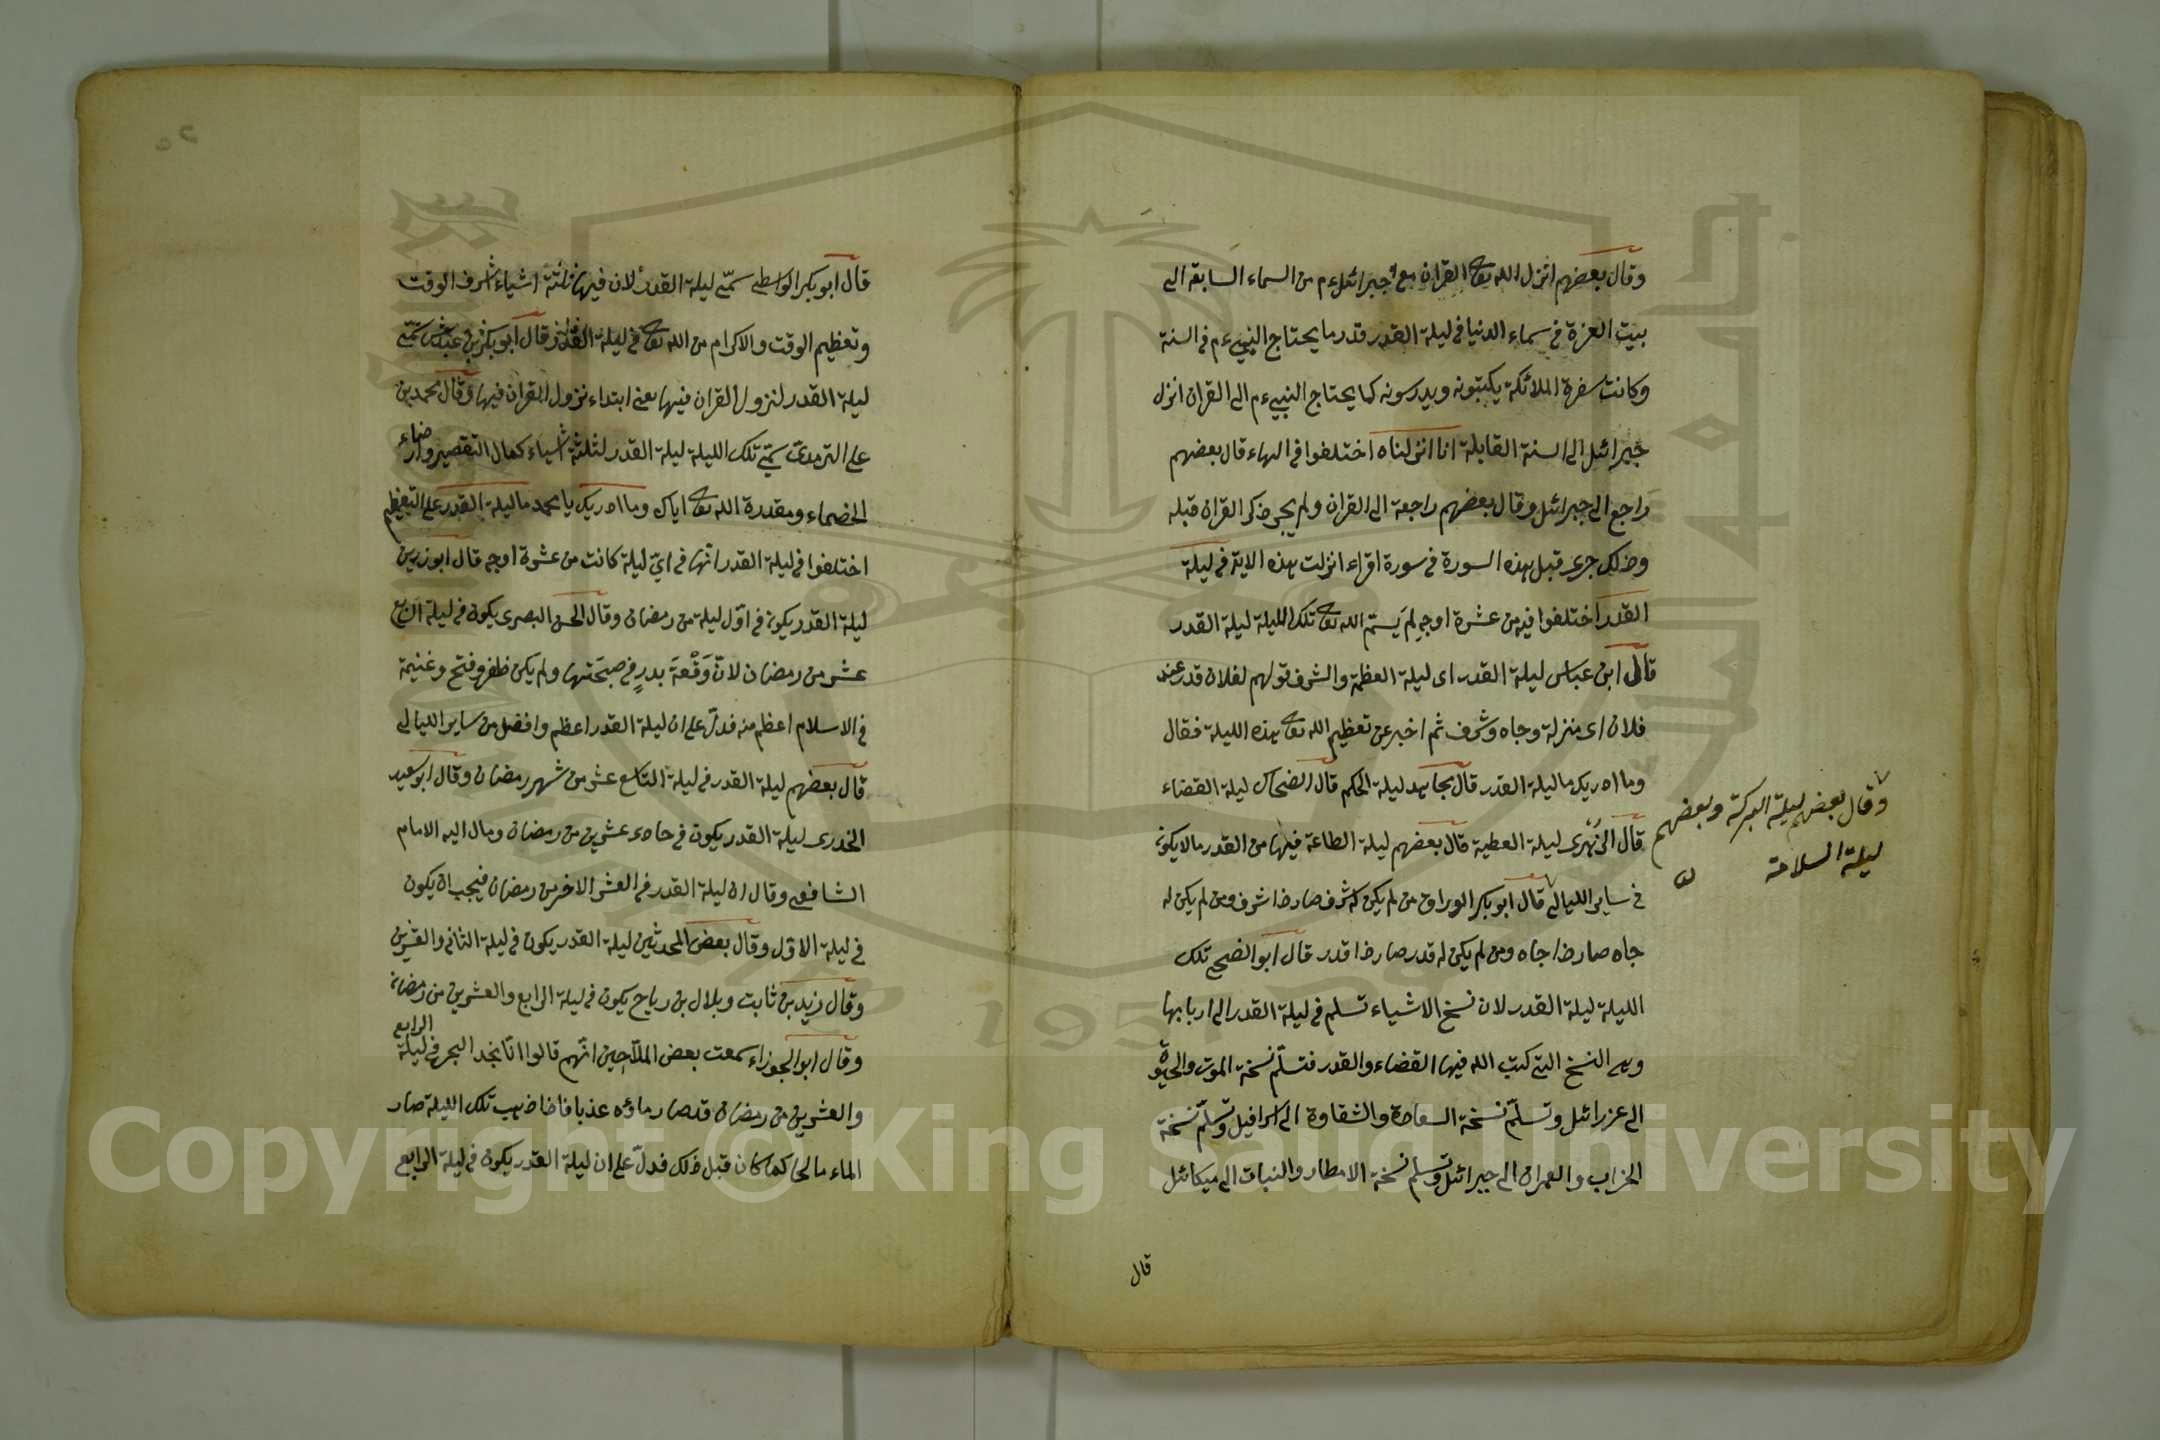 وقال بعضهم انزل الله تعا القران مع جبرائيل ءم من السماء السابعة الى
بيت العزة في سماء الدنيا في ليلة القدر قدر ما يحتاج النبي ءم في السنة
وكانت سفرة الملائكة يكتبونه ويدرسونه كما يحتاج النبي ءم الى القران انزل
جبرائل الى السنة القابلة انا انزلناه اختلفوا في الهاء قال بعضهم
راجع الى جبرائل وقال بعضهم راجعة الى القران ولم يجر ذكر القران قبله
وذلك جرى قبل هذه السورة في سورة اقراء انزلت هذه الاية في ليلة
القدر اختلفوا فيه من عشرة اوجه لم يسم الله تعا تلك الليلة ليلة القدر
قال ابن عباس ليلة القدر اى ليلة العظمة والشرف قولهم لفلان قدر عند
فلان اى منزلة وجاه وشرف ثم اخبر عن تعظيم الله تعا هذه الليلة فقال
وما ادريك ما ليلة القدر قال مجاهد ليلة الحكم قال الضحاك ليلة القضاء
قال الزهرى ليلة العطية قال بعضهم ليلة الطاعة فيها من القدر مالا يكون
في ساير الليالى قال ابو بكر الوراق من لم يكن له شرف صار ذا شرف ومن لم يكن له
جاه صار ذا جاه ومن لم يكن له قدر صار ذا قدر قال ابو الضحى تلك
الليلة ليلة القدر لان نسخ الاشياء تسلم في ليلة القدر الى اربابها
وهي النسخ التي كتب الله فيها القضاء والقدر فتسلم نسخة الموت والحيوة
الى عزرائل وتسلم نسخة السعادة والشقاوة الى اسرافيل وتسلم نسخة
الخراب والعمران الى جبرائل وتسلم نسخة الامطار والنبات الى ميكائل
قال
وقال بعضهم ليلة البركة وبعضهم
ليلة السلامة
قال ابو بكر الواسطى سمى ليلة القدر لان فيها ثلثة اشياء شرف الوقت
وتعظيم الوقت والاكرام من الله تعا في ليلة القدر وقال ابو بكر بن عباس سمى
ليلة القدر لنزول القران فيها يعنى ابتداء نزول القران فيها وقال محمد بن
على الترمدى سمى تلك الليلة ليلة القدر لثلثة اشياء كمال التقصير وارضاء
الخصماء ومقدرة الله تعا اياك وما ادريك يا محمد ما ليلة القدر على التعظيم
اختلفوا في ليلة القدر انها في اى ليلة كانت من عشرة اوجه قال ابو زرين
ليلة القدر يكون في اول ليلة من رمضان وقال الحسن البصرى يكون في ليلة الربع
عشر من رمضان لان وقعة بدر في صبحتها ولم يكن ظفر وفتح وغنيمة
في الاسلام اعظم منه فدل على ان ليلة القدر اعظم وافضل من ساير الليالى
قال بعضهم ليلة القدر في ليلة التاسع عشر من شهر رمضان وقال ابو سعيد
الخدرى ليلة القدر يكون في حادى عشرين من رمضان ومال اليه الامام
الشافعى وقال ان ليلة القدر في العشر الاخر من رمضان فيجب ان يكون
في ليلة الاول وقال بعض المحدثين ليلة القدر يكون في ليلة الثانى والعشرين
وقال زيد بن ثابت وبلال بن رباح يكون في ليلة الرابع والعشرين من رمضان
وقال ابو الجوزاء سمعت بعض الملاحين انهم قالوا انا نجد البحر في ليلة الرابع
والعشرين من رمضان قد صار ماؤه عذبا فاذا ذهب تلك الليلة صار
الماء مالحا كما كان قبل ذلك فدل على ان ليلة القدر يكون في ليلة الرابع
Copyright © King Saud University
1957